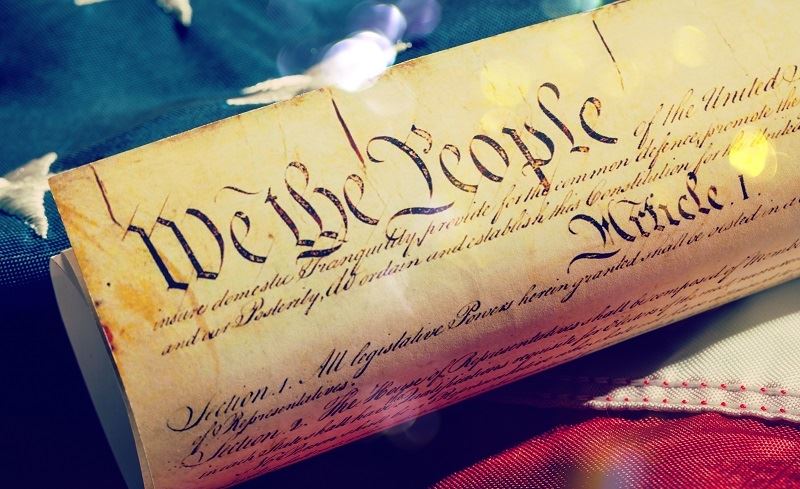 We the People of the United
insure domestic Tranquility, provide for the common defence, promote the
and our Posterity, do ordain and establish this Constitution for the United
Article. I.
Section. 1. All legislative Powers herein granted shall be vested in a
of Representatives.
Section. 2. The House of Representatives shall be composed of Members
in each State shall have Qualifications requisite for Electors of the most